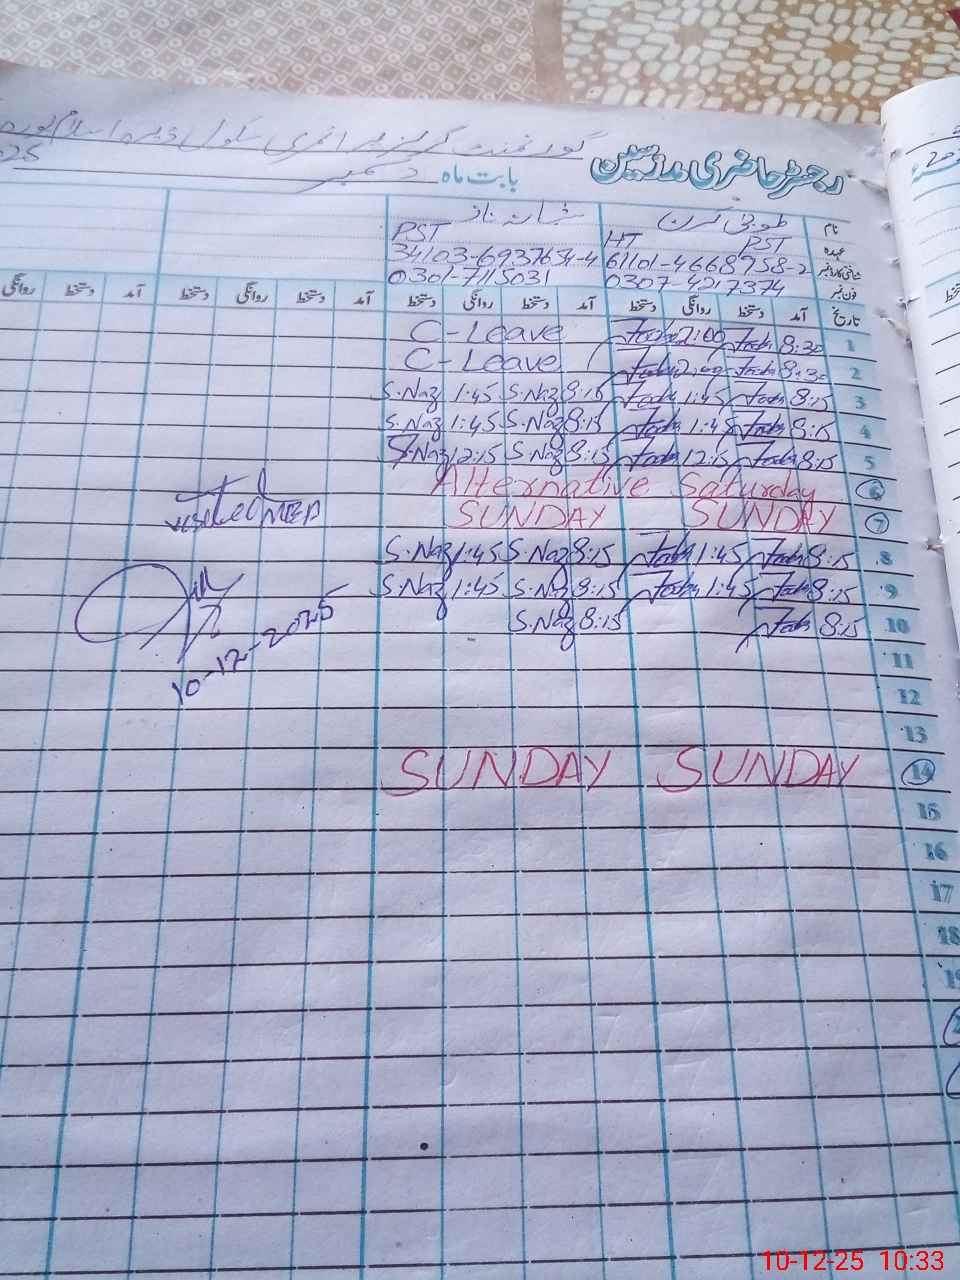 گورنمنٹ گرلز پرائمری سکول ڈیرہ اسلام پورہ
رجسٹر حاضری مدرسین
بابت ماہ دسمبر
نام طوبیٰ کرن شبانہ ناز
عہدہ PST HT PST
شناختی کارڈ نمبر 61101-4668958-2 34103-6937634-4
فون نمبر 0307-4217374 0301-7115031
تاریخ آمد دستخط روانگی دستخط آمد دستخط روانگی دستخط آمد دستخط روانگی دستخط آمد دستخط روانگی
1 8:30 2:00 C-Leave
2 8:30 2:00 C-Leave
3 8:15 1:45 8:15 S.Naz 1:45 S.Naz
4 8:15 1:45 8:15 S.Naz 1:45 S.Naz
5 8:15 12:15 8:15 S.Naz 12:15 S.Naz
6 Alternative Saturday
7 SUNDAY SUNDAY
visited MEA
8 8:15 1:45 8:15 S.Naz 1:45 S.Naz
9 8:15 1:45 8:15 S.Naz 1:45 S.Naz
10 8:15 8:15 S.Naz
10-12-2025
11
12
13
14 SUNDAY SUNDAY
15
16
17
18
19
10-12-25 10:33